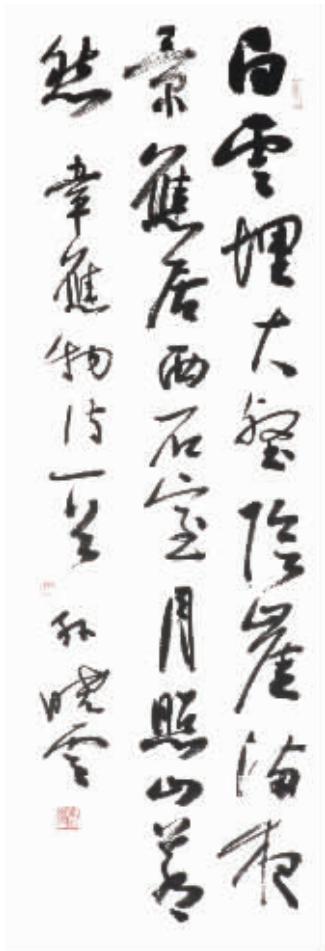 白雲埋大壑陰崖滴夜
泉應居西石室月照山蒼
然 韋應物詩一首 孫曉雲